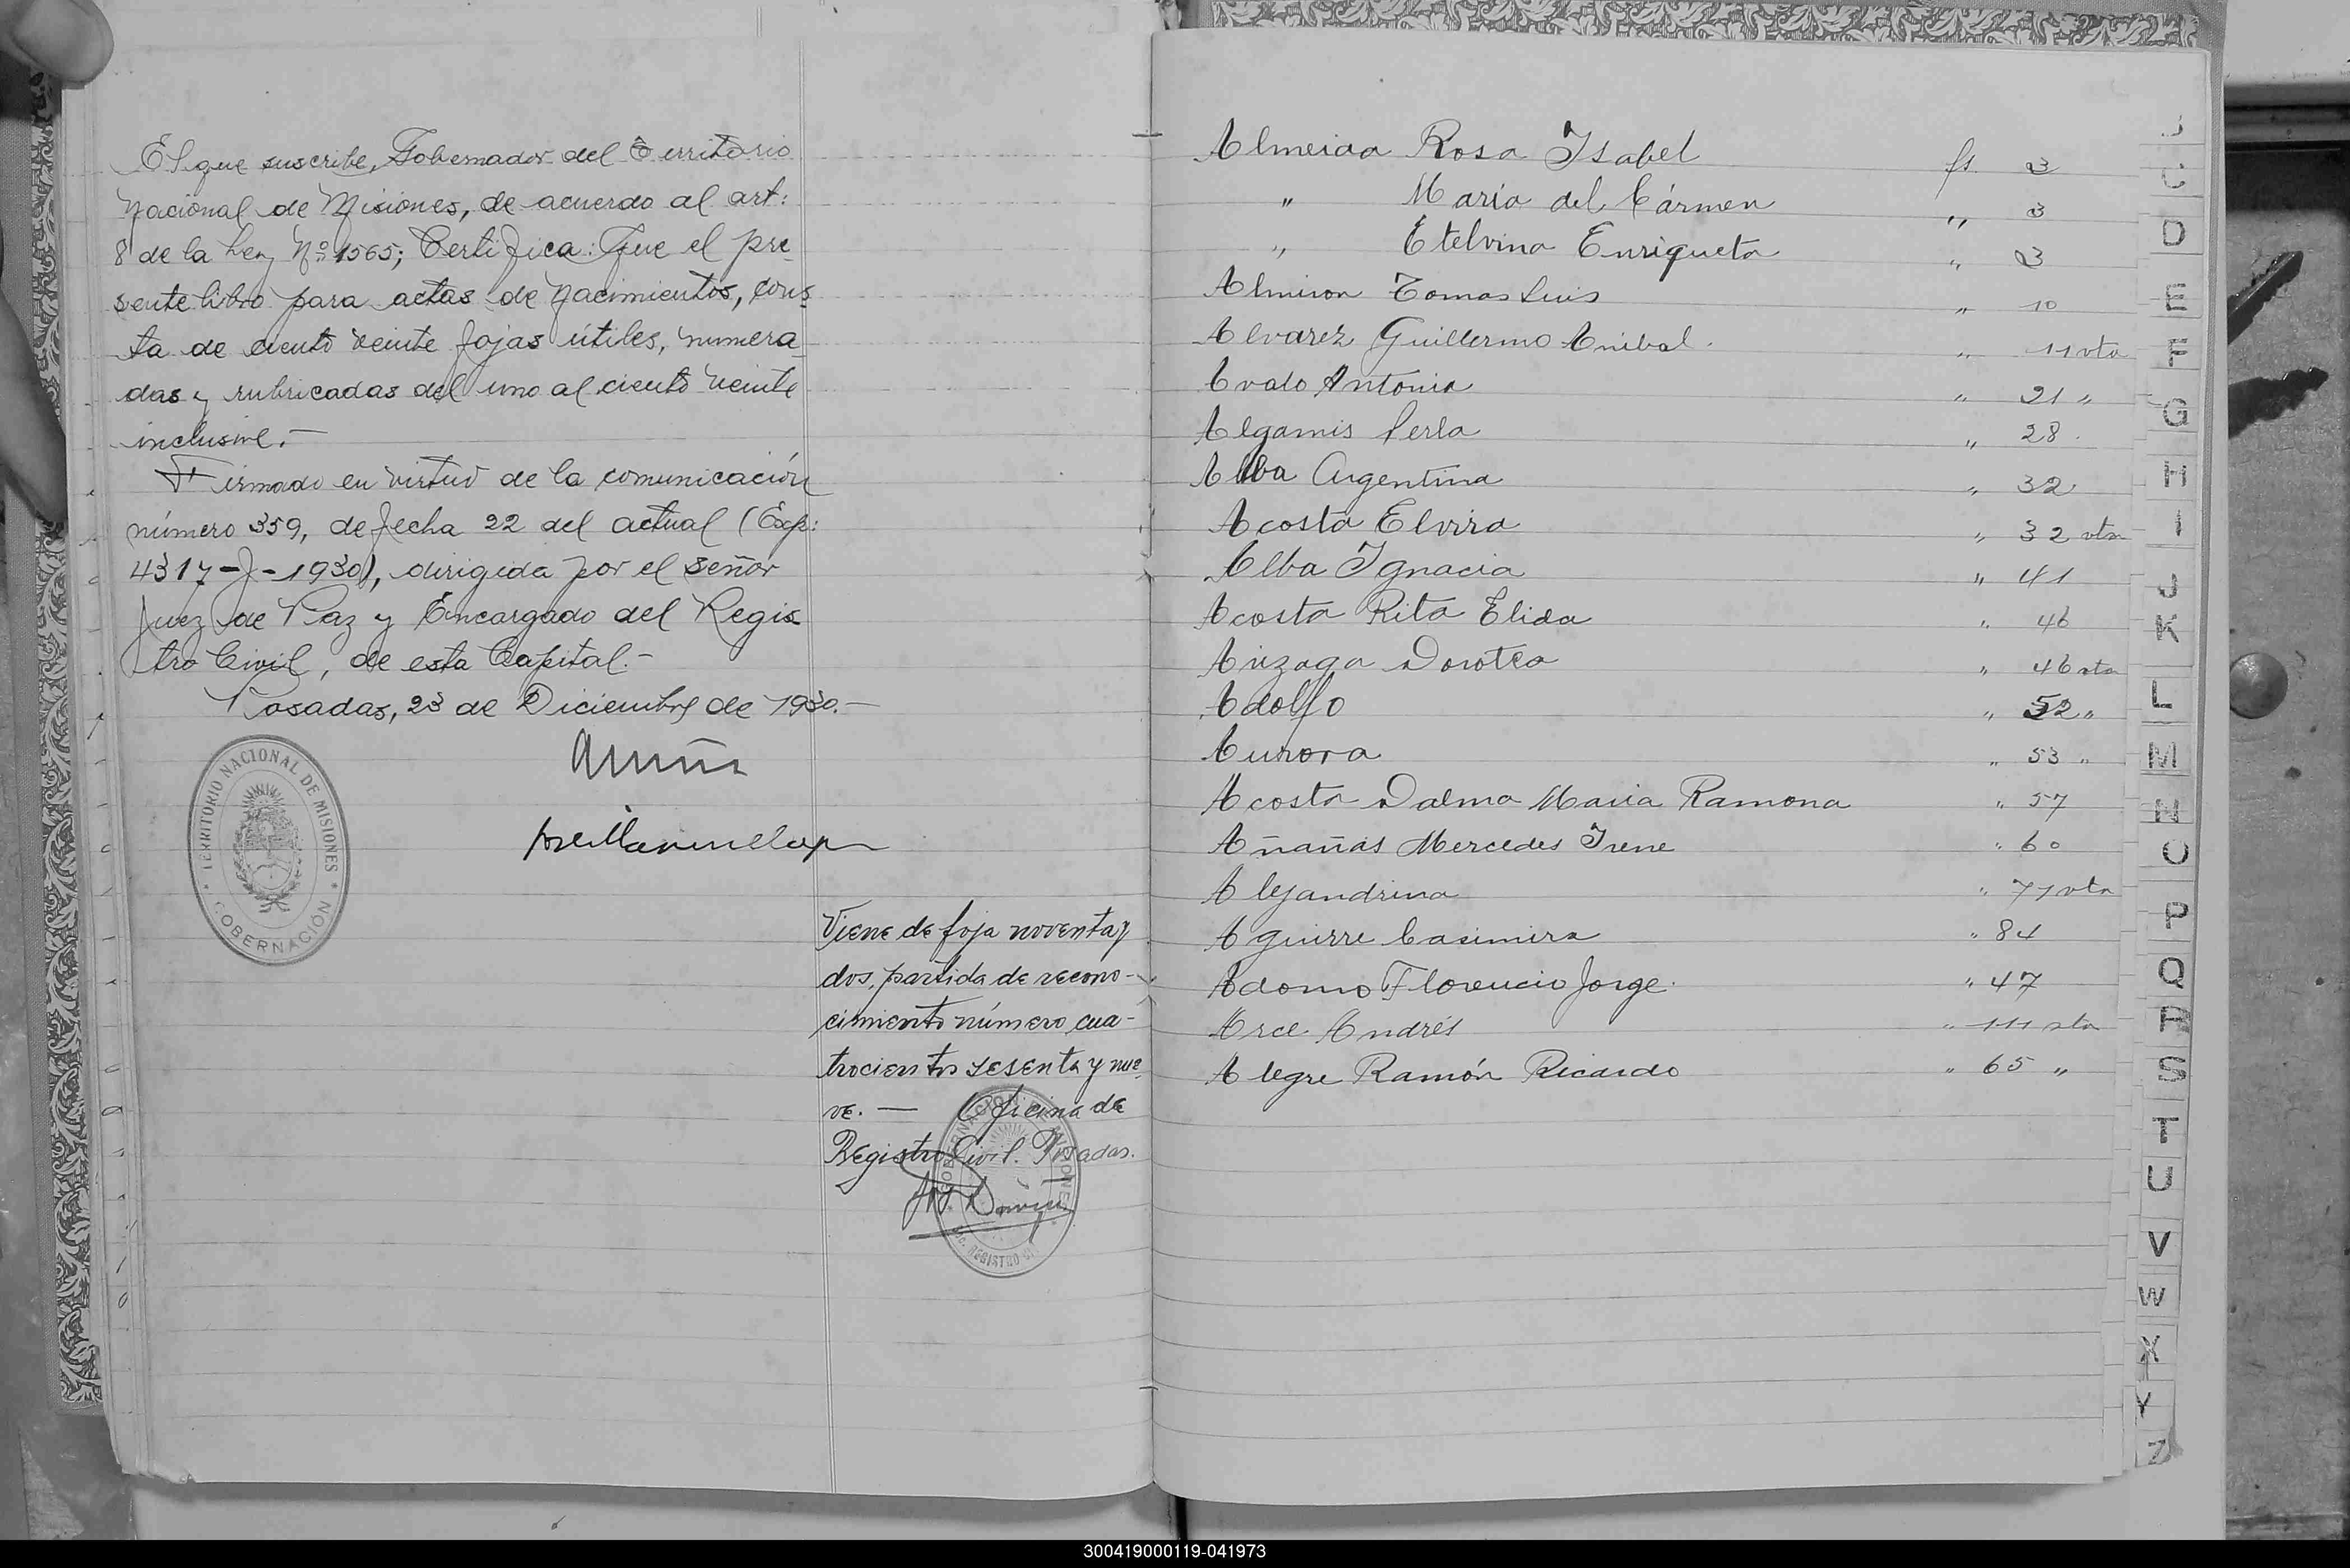 El que suscribe, Gobernador del Territorio
Nacional de Misiones, de acuerdo al art:
8 de la Ley Nº 1565; Certifica: Que el pre
sente libro para actas de Nacimientos, cons
ta de ciento veinte fojas útiles, numera
das y rubricadas del uno al ciento veinte
inclusive.-
Firmado en virtud de la comunicación
número 359, de fecha 22 del actual (Exp:
4317-J-1930), dirigida por el señor
Juez de Paz y Encargado del Regis
tro Civil, de esta Capital.-
Posadas, 23 de Diciembre de 1930.-
TERRITORIO NACIONAL DE MISIONES
GOBERNACIÓN
Viene de foja noventa y
dos, partida de recono-
cimiento número cua-
trocientos sesenta y nue
ve. — Oficina de
Registro Civil. Posadas.
Almeida Rosa Isabel fs. 3
" María del Cármen " 3
" Etelvina Enriqueta " 3
Almiron Tomas Luis " 10
Alvarez Guillermo Anibal. " 11 vta
Ovado Antonia " 21 "
Algamis Perla " 28
Alba Argentina " 32
Acosta Elvira " 32 vta
Alba Ignacia " 41
Acosta Rita Elida " 46
Aizaga Dorotea " 46 vta
Adolfo " 52 "
Aurora " 53 "
Acosta Dalma Maria Ramona " 57
Añañas Mercedes Irene " 60
Alejandrina " 71 vta
Aguirre Casimira " 84
Adorno Florencio Jorge. " 47
Arce Andrés " 111 vta
Alegre Ramón Ricardo " 65 "
C
D
E
F
G
H
I
J
K
L
M
N
O
P
Q
R
S
T
U
V
W
X
Y
Z
300419000119-041973